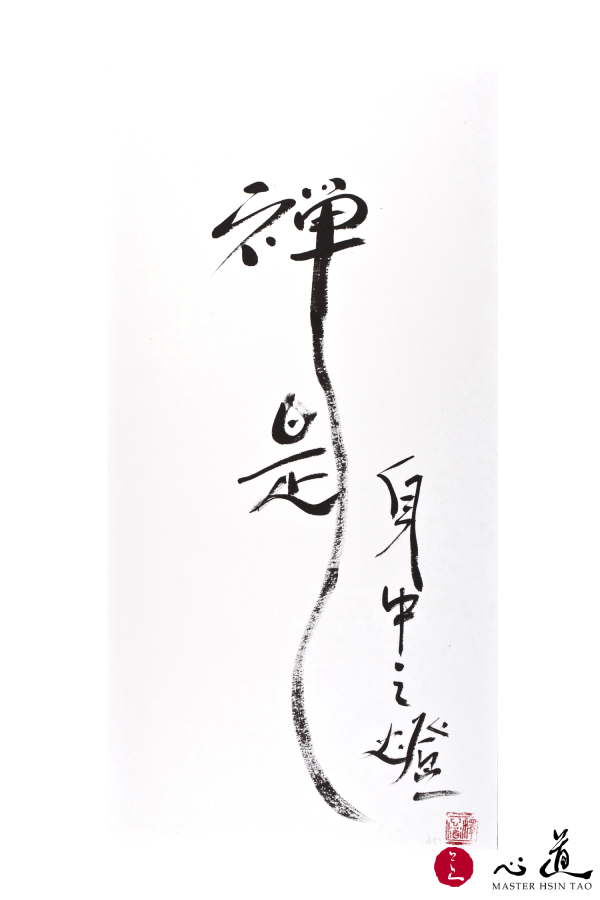 禅是
身中之燈
心道
MASTER HSIN TAO